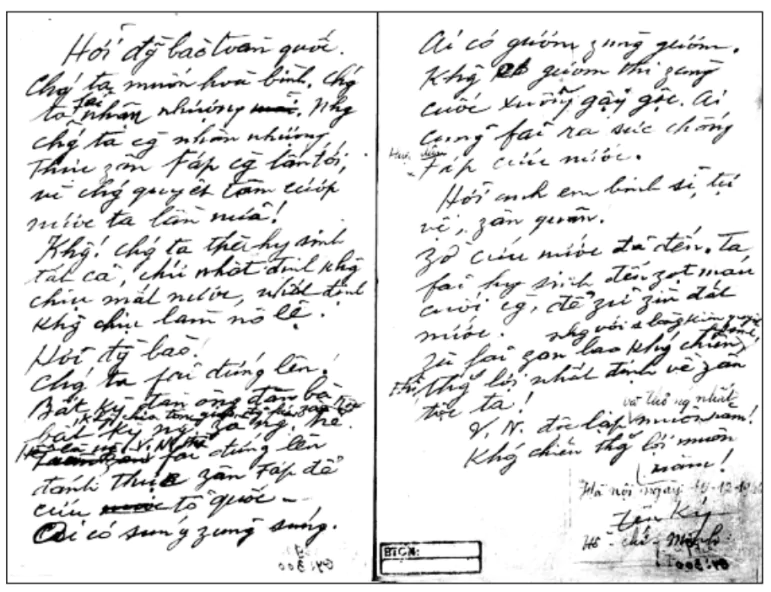 Hỡi đg̃ bào toàn quốc.
Chg' ta muốn hoà bình. Chg'
ta fải nhân nhượng. Nhg
chg' ta cg̃ nhân nhượng
Thực zân Fáp cg̃ lấn tới,
vì chg' quyết tâm cướp
nước ta lần nữa!
Khg! chg' ta thà hy sinh
tất cả, chứ nhất định khg
chịu mất nước, nhất định
khg chịu làm nô lệ.
Hỡi đg̃ bào!
Chg' ta fải đứng lên!
Bất kỳ đàn ông đàn bà
bất kỳ ng' già ng' trẻ.
fải đứng lên
đánh thực zân Fáp để
cứu tổ quốc –
Ai có súng zùng súng.
Ai có gươm zùng gươm.
Khg có gươm thì zùng
cuốc xuổng gậy gộc. Ai
cũng fải ra sức chống
Fáp cứu nước.
Hỡi anh em binh sĩ, tự
vệ, zân quân.
Zờ cứu nước đã đến. Ta
fải hy sinh đến zọt máu
cuối cg̀, để zữ zìn đất
nước.
Zù fải zan lao khg' chiến,
Thg' lợi nhất định về zân
tộc ta!
V.N. độc lập và thống nhất muôn năm!
Khg' chiến thg' lợi muôn
năm!
Hà nội ngày -12-
Hồ-chí-Minh.
BTCM: